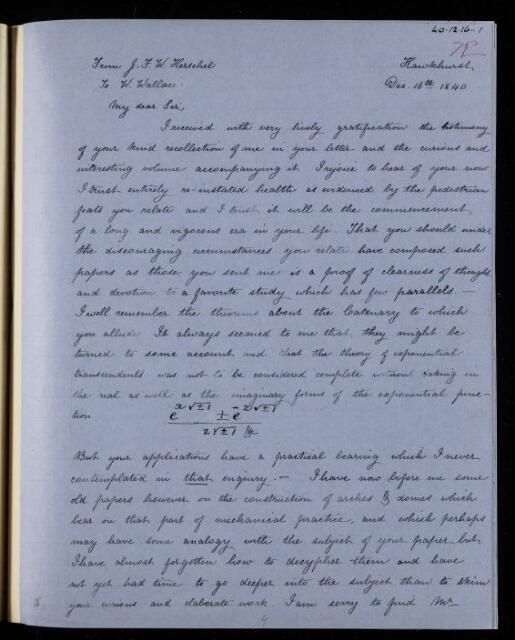 40·12·16-1
From J. F. W. Herschel Hawkhurst
To W. Wallace Dec. 16th 1840
My dear Sir,
I received with very lively gratification the testimony
of your kind recollection of me in your letter and the curious and
interesting volume accompanying it I rejoice to hear of your now
I trust entirely re-instated health as evidenced by the pedestrian
feats you relate and I trust it will be the commencement
of a long and vigorous era in your life. That you should under
the discouraging circumstances you relate have composed such
papers as those you sent me is a proof of clearness of thought
and devotion to a favorite study which has few parallels. —
I well remember the theorems about the Catenary to which
you allude It always seemed to me that they might be
turned to some account and that the theory of exponential
transcendents was not to be considered complete without taking in
the real as well as the imaginary forms of the exponential func-
tion
e^x√±1 ± e^-x√±1
2√±1 &c
But your applications have a practical bearing which I never
contemplated in that enquiry. — I have now before me some
old papers however on the construction of arches & domes which
bear on that part of mechanical practice, and which perhaps
may have some analogy with the subject of your paper but
I have almost forgotten how to decypher them and have
not yet had time to go deeper into the subject than to skim
your curious and elaborate work I am sorry to find Mr